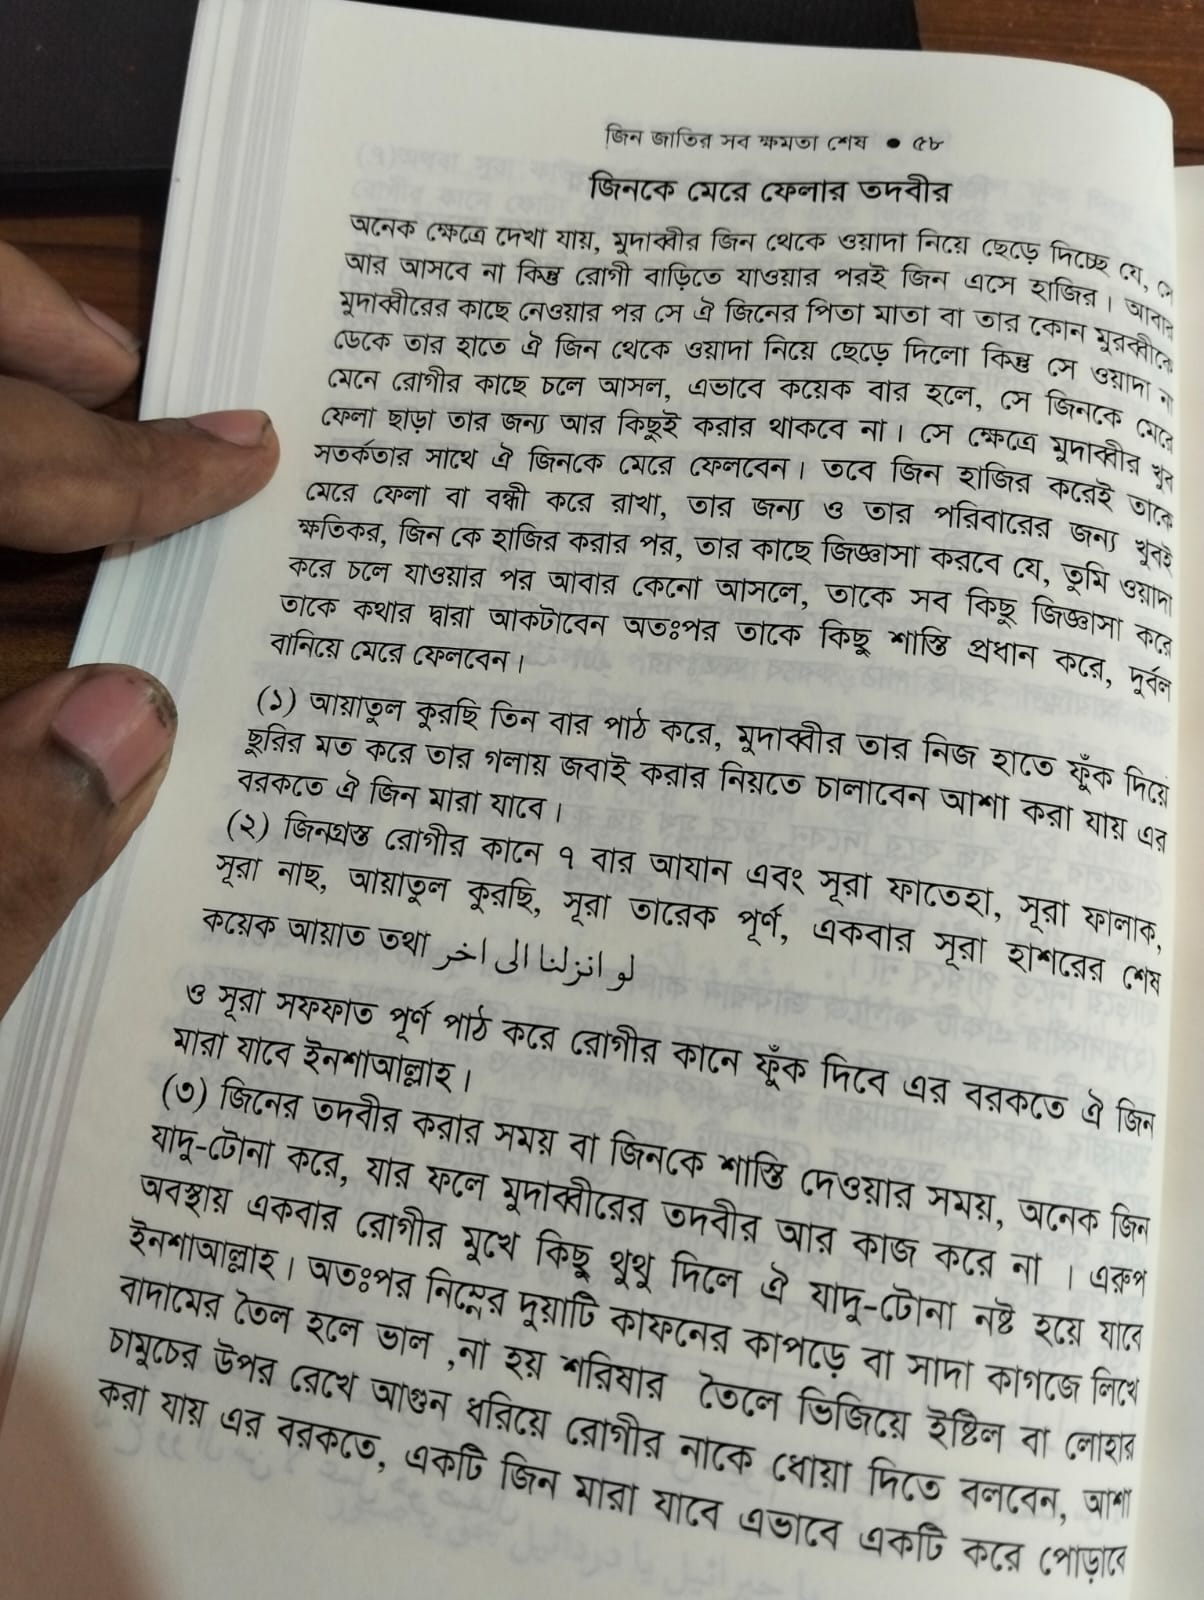 জিন জাতির সব ক্ষমতা শেষ ● ৫৮
জিনকে মেরে ফেলার তদবীর
অনেক ক্ষেত্রে দেখা যায়, মুদাব্বীর জিন থেকে ওয়াদা নিয়ে ছেড়ে দিচ্ছে যে, সে
আর আসবে না কিন্তু রোগী বাড়িতে যাওয়ার পরই জিন এসে হাজির। আবার
মুদাব্বীরের কাছে নেওয়ার পর সে ঐ জিনের পিতা মাতা বা তার কোন মুরব্বীকে
ডেকে তার হাতে ঐ জিন থেকে ওয়াদা নিয়ে ছেড়ে দিলো কিন্তু সে ওয়াদা না
মেনে রোগীর কাছে চলে আসল, এভাবে কয়েক বার হলে, সে জিনকে মেরে
ফেলা ছাড়া তার জন্য আর কিছুই করার থাকবে না। সে ক্ষেত্রে মুদাব্বীর খুব
সতর্কতার সাথে ঐ জিনকে মেরে ফেলবেন। তবে জিন হাজির করেই তাকে
মেরে ফেলা বা বন্ধী করে রাখা, তার জন্য ও তার পরিবারের জন্য খুবই
ক্ষতিকর, জিন কে হাজির করার পর, তার কাছে জিজ্ঞাসা করবে যে, তুমি ওয়াদা
করে চলে যাওয়ার পর আবার কেনো আসলে, তাকে সব কিছু জিজ্ঞাসা করে
তাকে কথার দ্বারা আকটাবেন অতঃপর তাকে কিছু শাস্তি প্রধান করে, দুর্বল
বানিয়ে মেরে ফেলবেন।
(১) আয়াতুল কুরছি তিন বার পাঠ করে, মুদাব্বীর তার নিজ হাতে ফুঁক দিয়ে
ছুরির মত করে তার গলায় জবাই করার নিয়তে চালাবেন আশা করা যায় এর
বরকতে ঐ জিন মারা যাবে।
(২) জিনগ্রস্ত রোগীর কানে ৭ বার আযান এবং সূরা ফাতেহা, সূরা ফালাক,
সূরা নাছ, আয়াতুল কুরছি, সূরা তারেক পূর্ণ, একবার সূরা হাশরের শেষ
কয়েক আয়াত তথা لو انزلنا الى اخر
ও সূরা সফফাত পূর্ণ পাঠ করে রোগীর কানে ফুঁক দিবে এর বরকতে ঐ জিন
মারা যাবে ইনশাআল্লাহ।
(৩) জিনের তদবীর করার সময় বা জিনকে শাস্তি দেওয়ার সময়, অনেক জিন
যাদু-টোনা করে, যার ফলে মুদাব্বীরের তদবীর আর কাজ করে না । এরুপ
অবস্থায় একবার রোগীর মুখে কিছু থুথু দিলে ঐ যাদু-টোনা নষ্ট হয়ে যাবে
ইনশাআল্লাহ। অতঃপর নিম্নের দুয়াটি কাফনের কাপড়ে বা সাদা কাগজে লিখে
বাদামের তৈল হলে ভাল ,না হয় শরিষার তৈলে ভিজিয়ে ইষ্টিল বা লোহার
চামুচের উপর রেখে আগুন ধরিয়ে রোগীর নাকে ধোয়া দিতে বলবেন, আশা
করা যায় এর বরকতে, একটি জিন মারা যাবে এভাবে একটি করে পোড়াবে